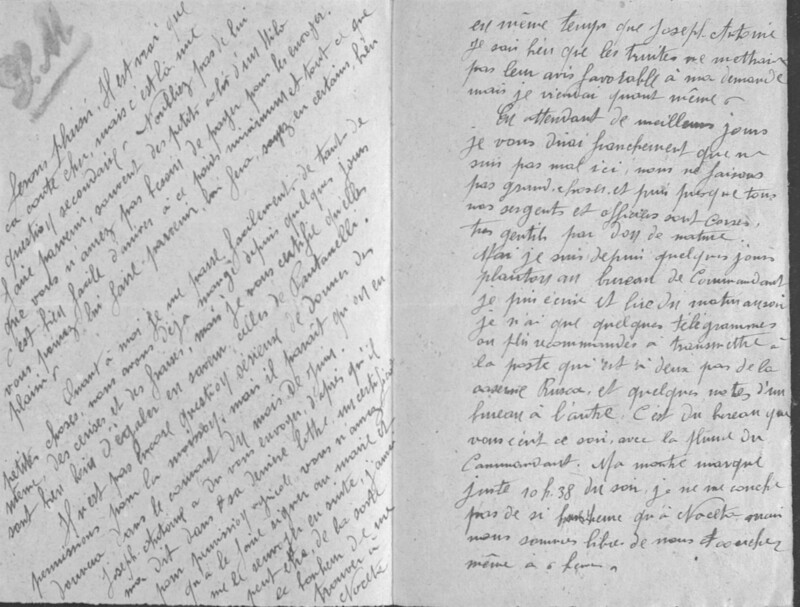 P. M
ferons plaisir. Il est vrai que
ça coûte cher, mais c'est là une
question secondaire. N'oubliez pas de lui
faire parvenir, souvent, des petits colis d'un kilo
que vous n'aurez pas besoin de payer pour les envoyer.
C'est bien facile d'arriver à ce poids minimum et tout ce que
vous pourrez lui faire parvenir, lui fera, soyez-en certains, bien
plaisir.
Quant à moi je me passe facilement, de tant de
petites choses, nous avons déjà mangé depuis quelques jours
même, des cerises et des fraises, mais je vous certifie qu'elles
sont bien loin d'égaler en saveur, celles de Pantanelli.
Il n'est pas encore question sérieuse de donner des
permissions pour la moisson; mais il paraît qu'on en
donnera dans le courant du mois de Juin.
Joseph Antoine a dû vous envoyer, d'après qu'il
m'a dit dans sa dernière lettre, un certificat
pour permission agricole, vous n'aurez
qu'à le faire signer au maire et
me le renvoyer en suite, j'aurai
peut-être, de la sorte
ce bonheur de me
trouver à
Noceta
en même temps que Joseph-Antoine
Je sais bien que les truites ne mettraient
pas leur avis favorable à ma demande
mais je viendrai quand même.
En attendant de meilleurs jours
je vous dirai franchement que ne
suis pas mal ici, nous ne faisons
pas grand-chose, et puis presque tous
nos sergents et officiers sont Corses,
très gentils par don de nature.
Moi je suis, depuis quelques jours
planton au bureau du Commandant
je puis écrire et lire du matin au soir
je n'ai que quelques télégrammes
ou plis recommandés à transmettre à
la poste qui est à deux pas de la
caserne Rusca, et quelques notes d'un
bureau à l'autre. C'est du bureau que
vous écrit ce soir, avec la plume du
Commandant. Ma montre marque
juste 10 h. 38 du soir, je ne me couche
pas de si bonne heure qu'à Noceta mais
nous sommes libre de nous coucher
même à 6 heures.